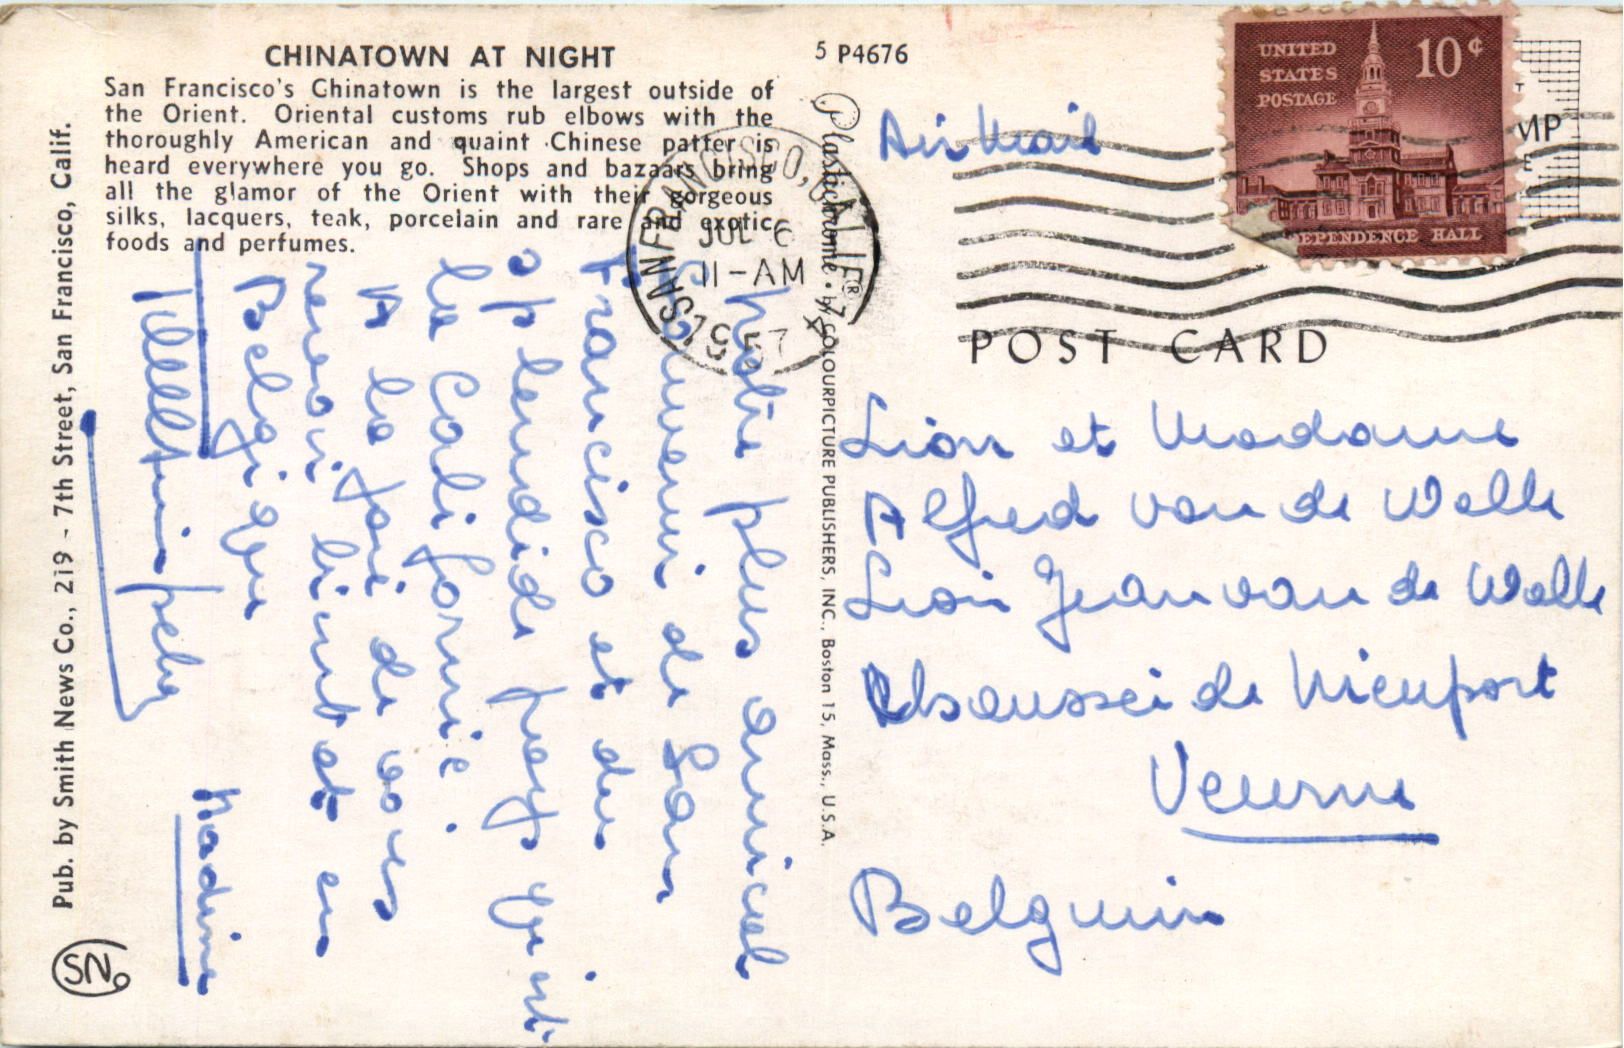 CHINATOWN AT NIGHT
San Francisco's Chinatown is the largest outside of
the Orient. Oriental customs rub elbows with the
thoroughly American and quaint Chinese patter is
heard everywhere you go. Shops and bazaars bring
all the glamor of the Orient with their gorgeous
silks, lacquers, teak, porcelain and rare and exotic
foods and perfumes.
Pub. by Smith News Co., 219 - 7th Street, San Francisco, Calif.
SN
5 P4676
Plastichrome ® by COLOURPICTURE PUBLISHERS, INC., Boston 15, Mass., U.S.A.
SAN FRANCISCO, CALIF.
JUL 6
11-AM
1957
UNITED
STATES
POSTAGE
10¢
INDEPENDENCE HALL
Air Mail
POST CARD
notre plus amical
Souvenir de San
Francisco et du
splendide pays qu'est
la Californie.
A la joie de vous
revoir bientot en
Belgique
Nadine
et Madame
Alfred van de Walle
Jean van de Walle
Chaussée de Nieuport
Veurne
Belguim